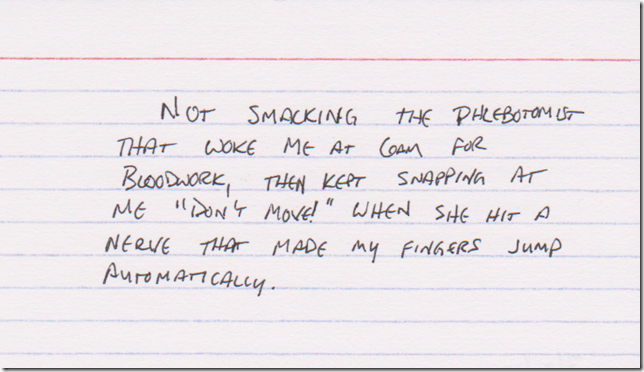 Not smacking the phlebotomist
that woke me at 6am for
bloodwork, then kept snapping at
me "Don't move!" when she hit a
nerve that made my fingers jump
automatically.